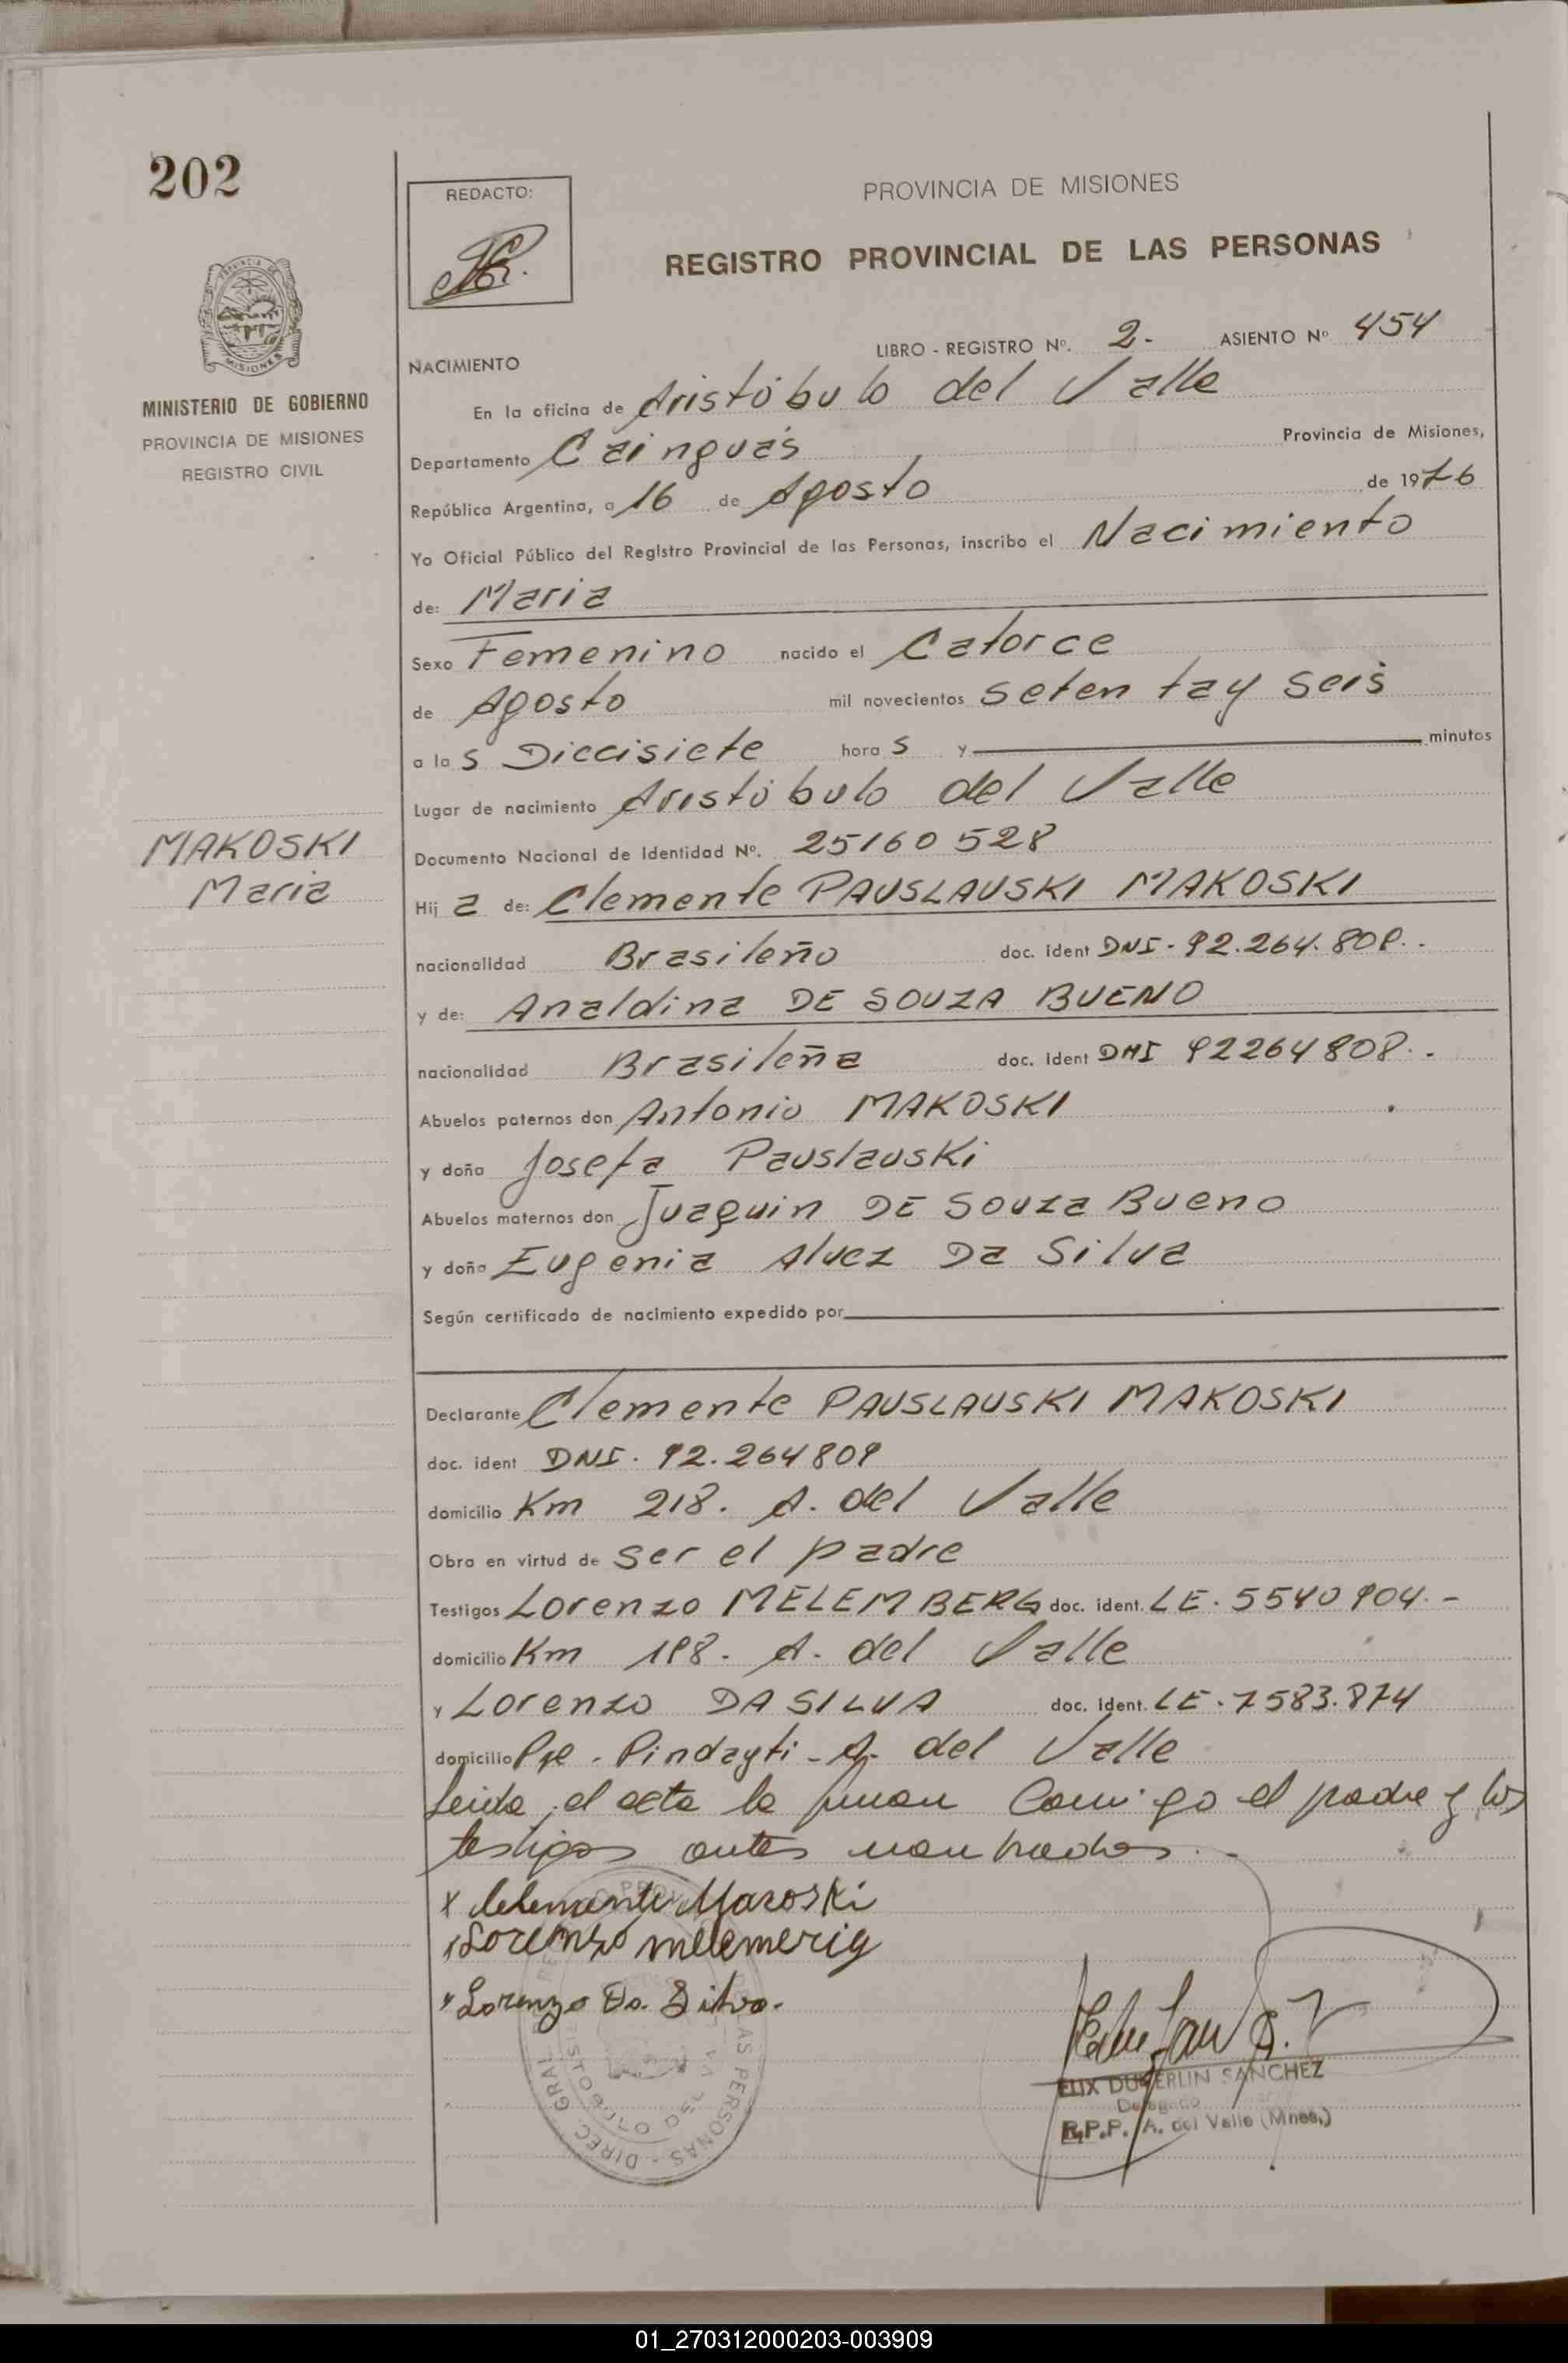 202
REDACTO:
PROVINCIA DE MISIONES
REGISTRO PROVINCIAL DE LAS PERSONAS
MINISTERIO DE GOBIERNO
PROVINCIA DE MISIONES
REGISTRO CIVIL
LIBRO - REGISTRO Nº. 2.- ASIENTO Nº 454
NACIMIENTO
En la oficina de Aristóbulo del Valle
Departamento Cainguás Provincia de Misiones,
República Argentina, a 16 de Agosto de 1976
Yo Oficial Público del Registro Provincial de las Personas, inscribo el Nacimiento
de: Maria
Sexo Femenino nacido el Catorce
de Agosto mil novecientos setenta y seis
a las Diecisiete horas y minutos
Lugar de nacimiento Aristóbulo del Valle
MAKOSKI
Maria
Documento Nacional de Identidad Nº. 25160528
Hija de: Clemente PAUSLAUSKI MAKOSKI
nacionalidad Brasileño doc. ident DNI- 92.264.809.-
y de: Analdina DE SOUZA BUENO
nacionalidad Brasileña doc. ident DNI 92264808.-
Abuelos paternos don Antonio MAKOSKI
y doña Josefa Pauslauski
Abuelos maternos don Juaquin DE SOUZA BUENO
y doña Eugenia Alvez Da Silva
Según certificado de nacimiento expedido por
Declarante Clemente PAUSLAUSKI MAKOSKI
doc. ident DNI. 92.264809
domicilio Km 218. A. del Valle
Obra en virtud de ser el padre
Testigos Lorenzo MELEMBERG doc. ident. LE. 5540904.-
domicilio Km 198. A. del Valle
y Lorenzo DA SILVA doc. ident. LE. 7583.874
domicilio Pje. Pindayti - A. del Valle
Leida el acta la firman Conmigo el padre y los
testigos antes nombrados.-
x Clemente Maroski
x Lorenzo melemerig
x Lorenzo Da. Silva.
SANCHEZ
Delegado
R.P.P. A. del Valle (Mnes.)
01_270312000203-003909